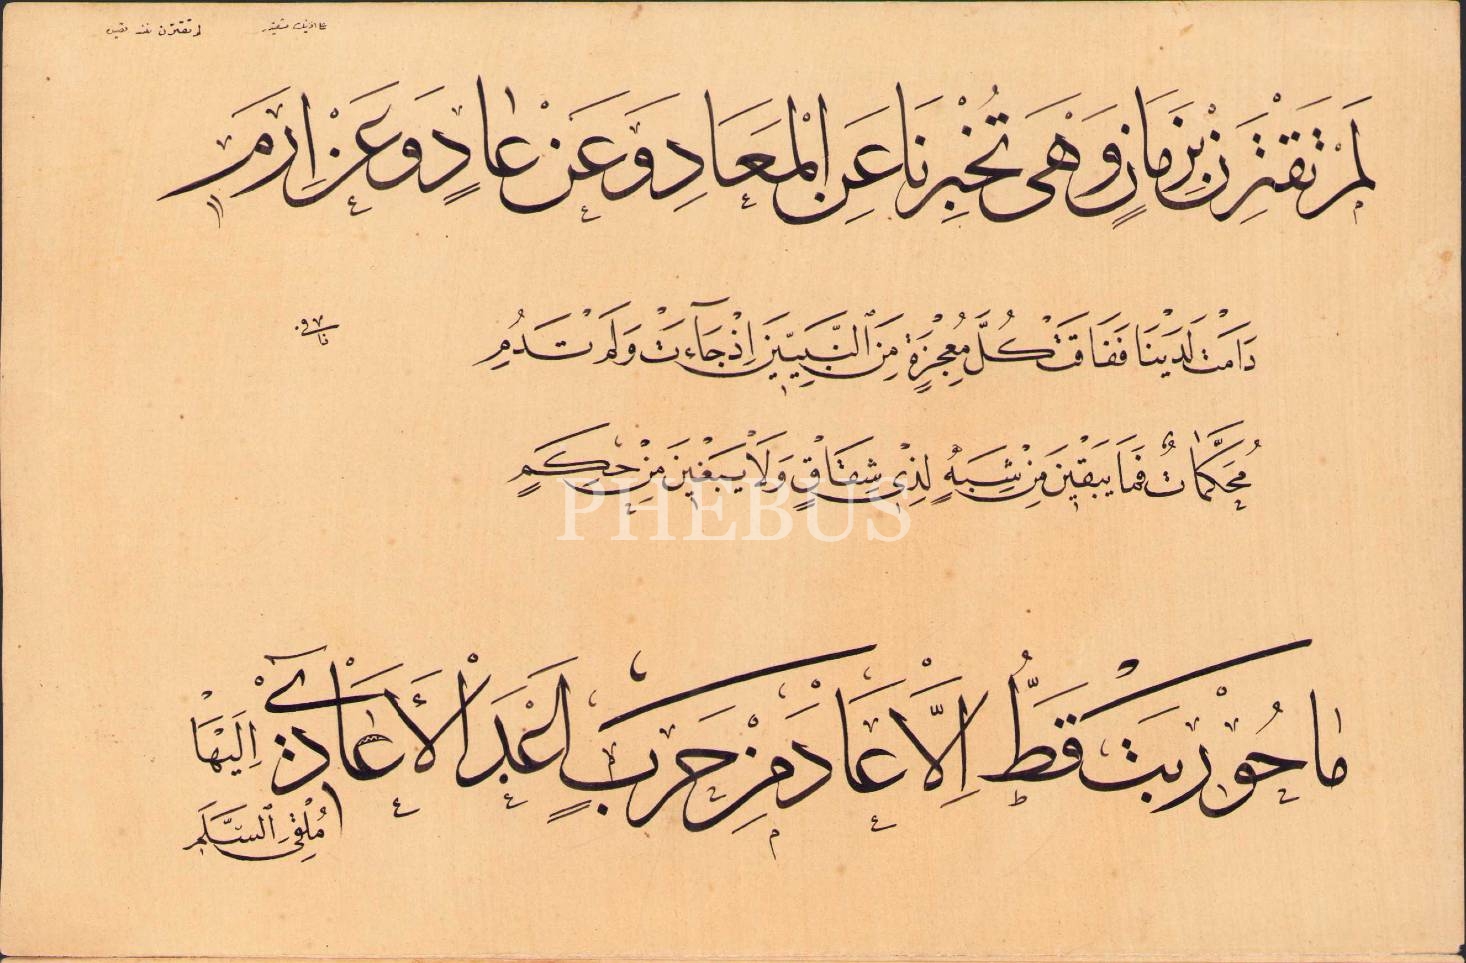 لَمْ تَقْتَرِنْ بِزَمَانٍ وَهْيَ تُخْبِرُنَا عَنِ الْمَعَادِ وَعَنْ عَادٍ وَعَنْ إِرَمِ
دَامَتْ لَدَيْنَا فَفَاقَتْ كُلَّ مُعْجِزَةٍ مِنَ النَّبِيِّينَ إِذْ جَآءَتْ وَلَمْ تَدُمِ
مُحَكَّمَاتٌ فَمَا يُبْقِينَ مِنْ شُبَهٍ لِذِي شِقَاقٍ وَلَا يَبْغِينَ مِنْ حَكَمِ
مَا حُورِبَتْ قَطُّ إِلَّا عَادَ مِنْ حَرَبٍ أَعْدَى الْأَعَادِي إِلَيْهَا
مُلْقِيَ السَّلَمِ
PHEBUS